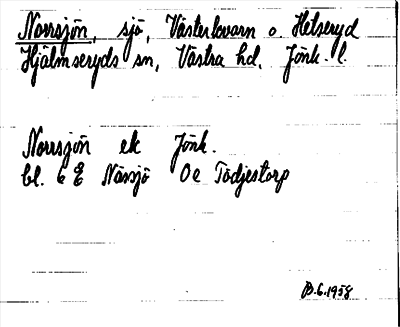 Norrsjön, sjö, Västerkvarn o. Hetseryd
Hjälmseryds sn, Västra hd, Jönk. l.
Norrsjön ek Jönk.
bl. 6 E Nässjö Oe Tödjestorp
B.6.1958